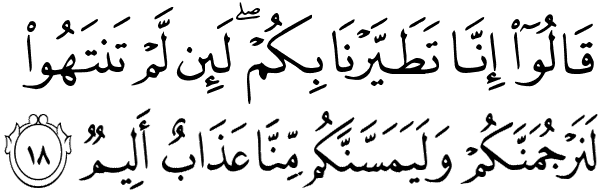 قَالُوٓا۟ إِنَّا تَطَيَّرْنَا بِكُمْ ۖ لَئِن لَّمْ تَنتَهُوا۟
لَنَرْجُمَنَّكُمْ وَلَيَمَسَّنَّكُم مِّنَّا عَذَابٌ أَلِيمٌ ١٨